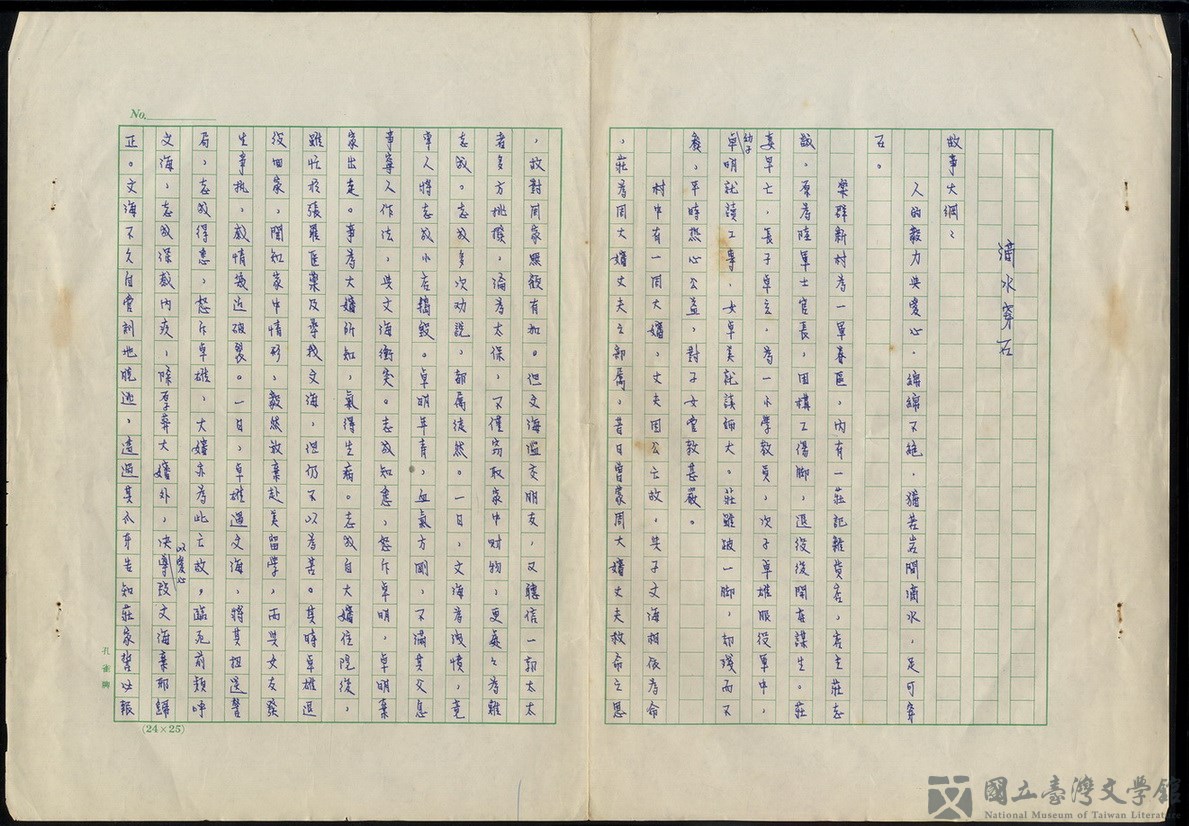 滴水穿石
故事大綱:
人的毅力與愛心,綿綿不絕,猶若岩間滴水,足可穿
石。
樂群新村為一軍眷區,內有一莊記雜貨店,店主莊志
誠,原為陸軍士官長,因構工傷腳,退役後開店謀生。莊
妻早亡,長子卓立,為一小學教員,次子卓雄服役軍中,
幼子卓明就讀工專,女卓美就讀師大。莊雖跛一腳,卻殘而不
廢,平時熱心公益,對子女管教甚嚴。
村中有一周大嬸,丈夫因公亡故,與子文海相依為命
,莊為周大嬸丈夫之部屬,昔日曾蒙周大嬸丈夫救命之恩
,故對周家照顧有加。但文海濫交明友,又聽信一郭太太
者多方挑撥,淪為太保,不僅竊取家中財物,更處處為難
志成。志成多次勸說,都屬徒然。一日,文海為洩憤,竟
率人將志成小店搗毀。卓明年青,血氣方剛,不滿其父息
事寧人作法,與文海衝突。志成知悉,怒斥卓明,卓明棄
家出走。事為大嬸所知,氣得生病。志成自大嬸住院後,
雖忙於張羅醫藥及尋找文海,但仍不以為苦。其時卓雄退
役回家,聞知家中情形,毅然放棄赴美留學,而與女友發
生爭執,感情幾近破裂。一日,卓雄遇文海,將其扭送警
局,志成得悉,怒斥卓雄,大嬸亦為此亡故,臨死前頻呼
文海,志成深感內疚,除厚葬大嬸外,決以愛心導致文海棄邪歸
正。文海不久自管訓地脫逃,遭遇其不弃告知莊家誓必報
No.
(24×25)
孔雀牌
國立臺灣文學館
National Museum of Taiwan Literature